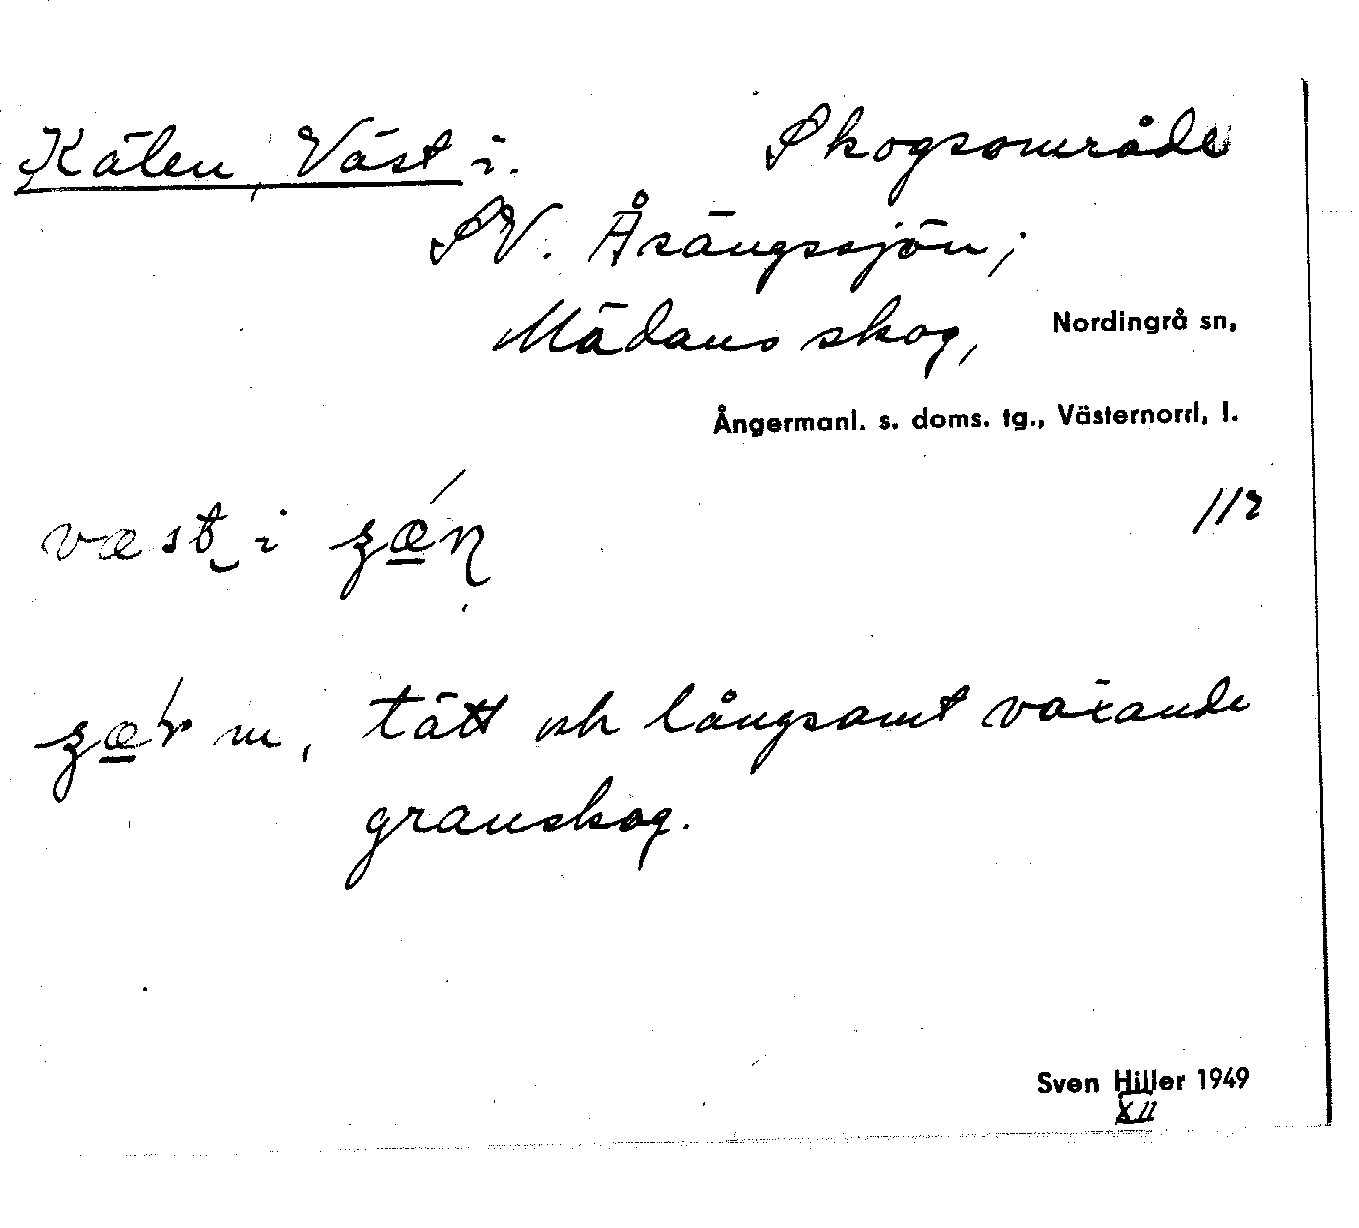 Kälen, Väst i. Skogsområde
SV. Åsängssjön;
Mädans skog, Nordingrå sn,
Ångermanl. s. doms. tg., Västernorrl. l.
112
væst i
m, tätt och långsamt växande
granskog.
Sven Hiller 1949
XII